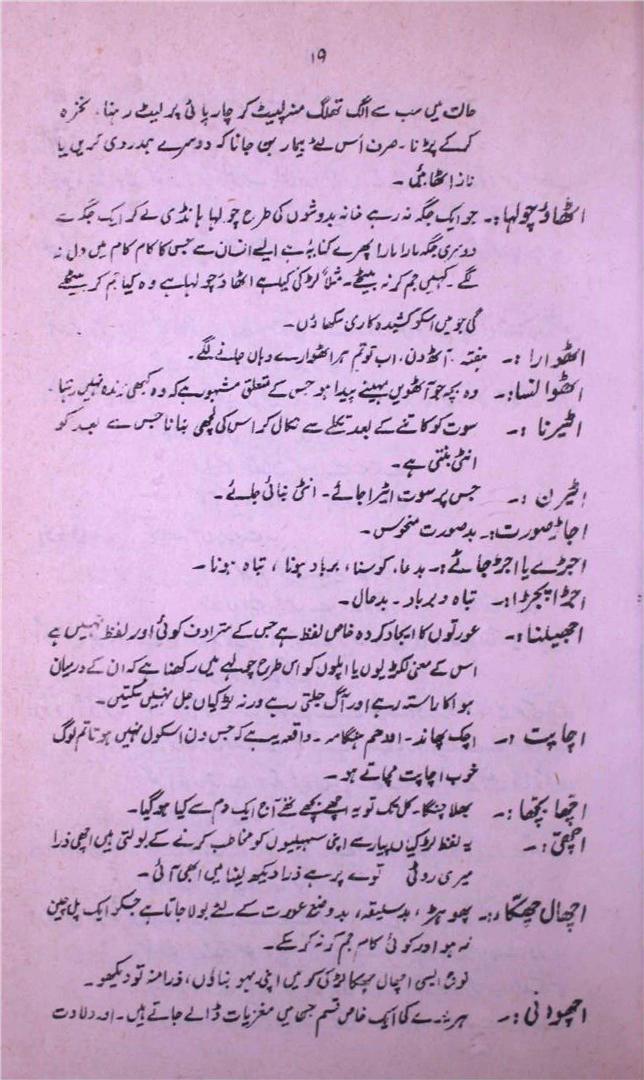 ۱۹
حالت میں سب سے الگ تھلگ منہ لپیٹ کر چارپائی پر لیٹے رہنا۔ نخرہ
کرکے پڑنا۔ صرف اس لئے بیمار بن جانا کہ دوسرے ہمدردی کریں یا
ناز اٹھائیں۔
اٹھاؤ چولہا:۔ جو ایک جگہ نہ رہے خانہ بدوشوں کی طرح چولہا ہانڈی لے کر ایک جگہ سے
دوسری جگہ مارا مارا پھرے کنایۃً ہے ایسے انسان سے جس کا کام کام میں دل نہ
لگے۔ کہیں جم کر نہ بیٹھے۔ مثلاً لڑکی کیا ہے اٹھاؤ چولہا ہے وہ کیا جم کر بیٹھے
گی جو میں اسکو کشیدہ کاری سکھاؤں۔
اٹھوارا:۔ ہفتہ۔ آٹھ دن، اب تو تم ہر اٹھوارے وہاں جانے لگے۔
اٹھوانسا:۔ وہ بچہ جو آٹھویں مہینے پیدا ہو جس کے متعلق مشہور ہے کہ وہ کبھی زندہ نہیں رہتا۔
اٹیرنا:۔ سوت کو کاتنے کے بعد تکلے سے نکال کر اس کی لچھی بنانا جس سے بعد کو
انٹی بنتی ہے۔
اٹیرن:۔ جس پر سوت اٹیرا جائے۔ انٹی بنائی جائے۔
اجاڑ صورت:۔ بدصورت منحوس۔
اجڑے یا اجڑ جائے:۔ بددعا، کوسنا، برباد ہونا، تباہ ہونا۔
اجڑا بجڑا:۔ تباہ و برباد۔ بدحال۔
اجھیلنا:۔ عورتوں کا ایجاد کردہ خاص لفظ ہے جس کے مترادف کوئی اور لفظ نہیں ہے
اس کے معنی لکڑیوں یا اپلوں کو اس طرح چولہے میں رکھنا ہے کہ ان کے درمیان
ہوا کا راستہ رہے اور آگ جلتی رہے ورنہ لکڑیاں جل نہیں سکتیں۔
اچاپت:۔ اچک پھاند۔ اودھم ہنگامہ۔ واقعہ یہ ہے کہ جس دن اسکول نہیں ہوتا تم لوگ
خوب اچاپت مچاتے ہو۔
اچھا بچھا:۔ بھلا چنگا۔ کل تک تو یہ اچھے بچھے تھے آج ایک دم سے کیا ہوگیا۔
اچھی:۔ یہ لفظ لڑکیاں پیار سے اپنی سہیلیوں کو مخاطب کرنے کے بولتی ہیں اچھی ذرا
میری روٹی توے پر سے ذرا دیکھ لینا میں ابھی آئی۔
اچھال چھکا:۔ پھوہڑ، بدسلیقہ، بدوضع عورت کے لئے بولا جاتا ہے جسکو ایک پل چین
نہ ہو اور کوئی کام جم کر نہ کرسکے۔
نوج ایسی اچھال چھکا لڑکی کو میں اپنی بہو بناؤں، ذرا منہ تو دیکھو۔
اچھوانی:۔ ہریرے کی ایک خاص قسم جسمیں مغزیات ڈالے جاتے ہیں۔ اور ولادت